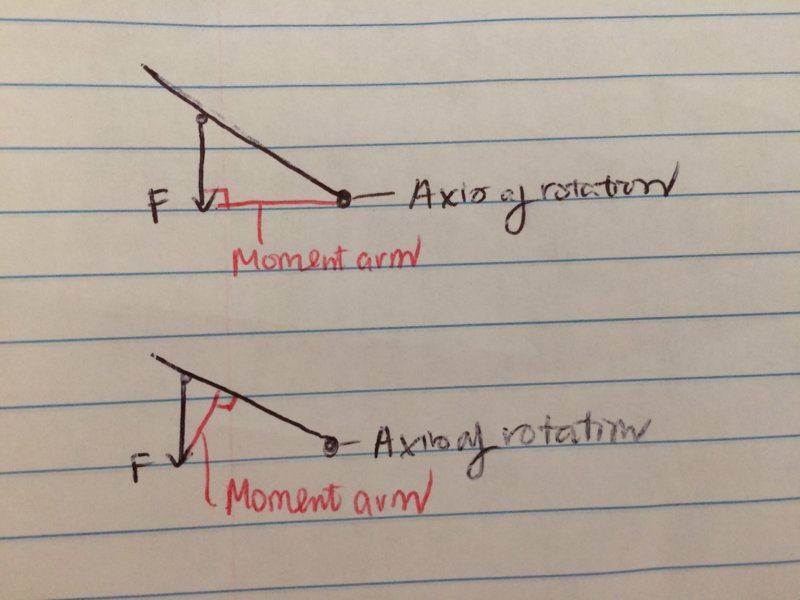 F
Axis of rotation
Moment arm
F
Axis of rotation
Moment arm